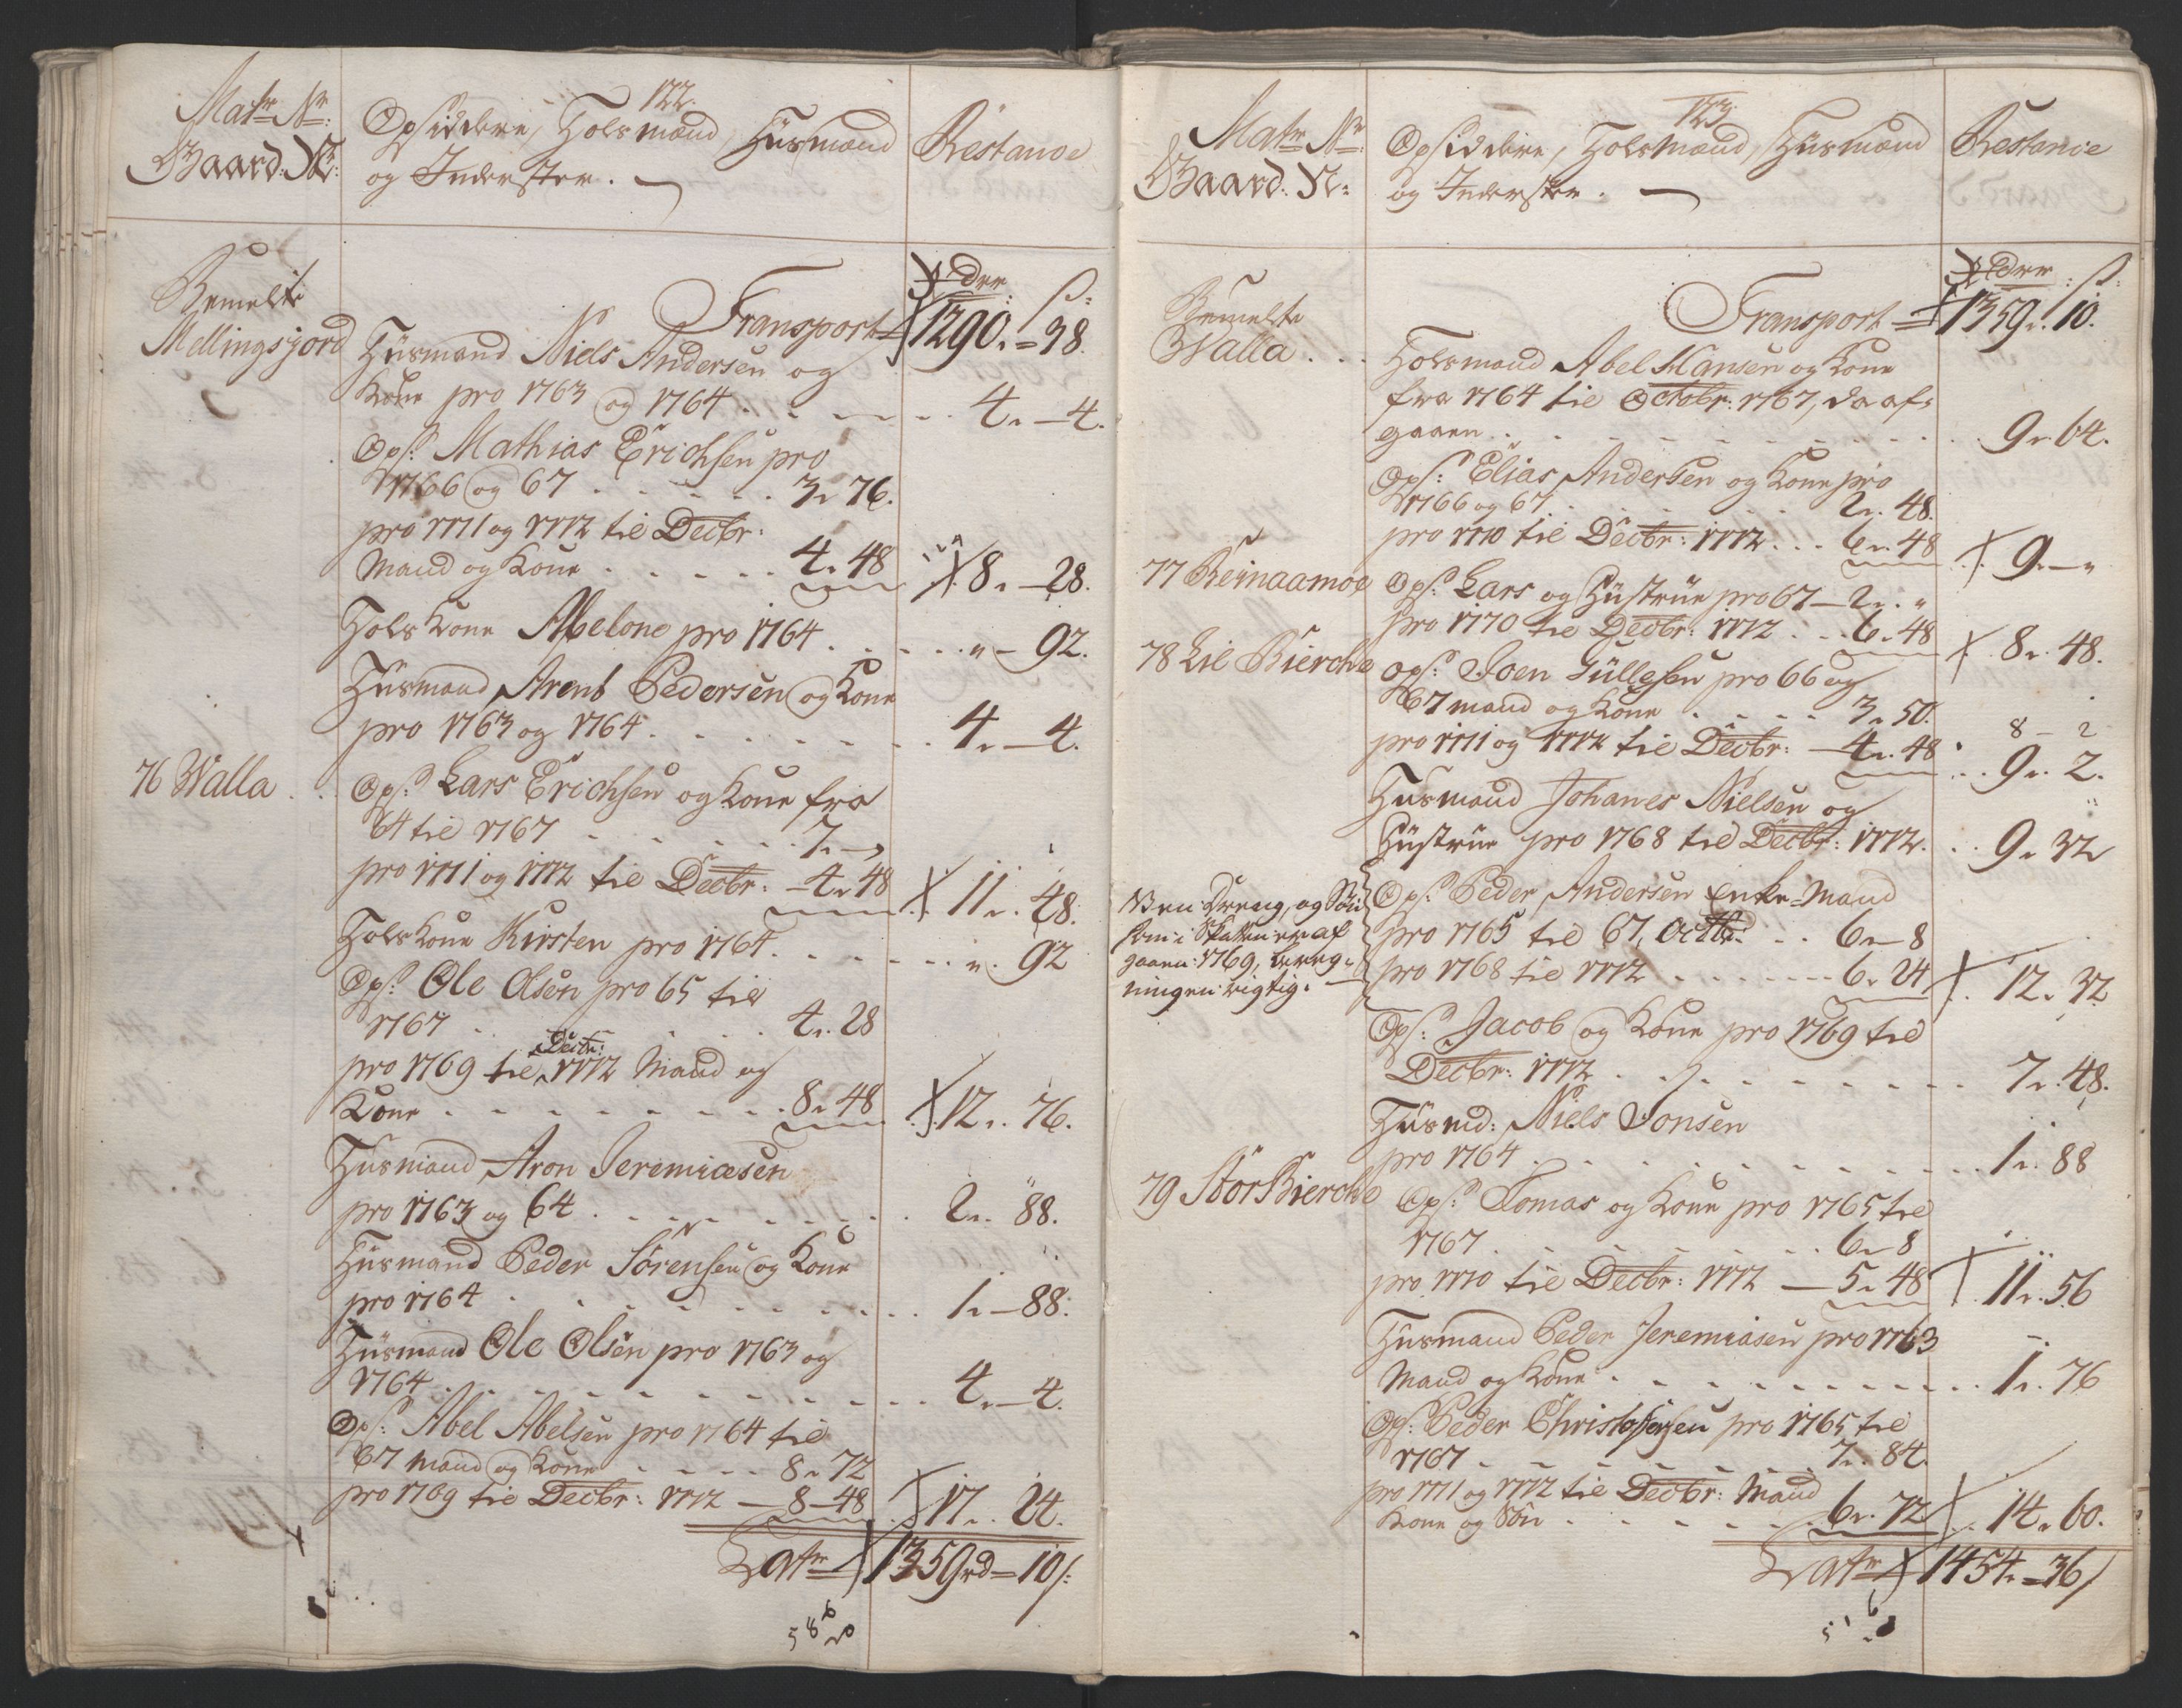 122.
Matr Nr:
Gaard: Nr:
Opsiddere, Folsmænd, Huusmænd
og Inderster.
Restance
Bemelte
Mellingsjord
Transport
rdr: s:
1290. 38.
Huusmand Niels Andersen og
Kone pro 1763 og 1764 . . . 4. - 4.
Ops: Mathias Erichsen pro
1766 og 67 . . . 3. 76.
pro 1771 og 1772 til Decbr:
Mand og Kone . . . 4. 48
8. - 28.
Fols Kone Abelone pro 1764 . . . " - 92.
Huusmand Arent Pedersen og Kone
pro 1763 og 1764 . . . 4. - 4.
76 Walla . . Ops: Lars Erichsen og Kone fra
64 til 1767 . . . 7. -
pro 1771 og 1772 til Decbr: - 4. 48
11. 48.
Fols Kone Kirsten pro 1764 . . . ". 92
Ops: Ole Olsen pro 65 til
1767 . . . 4. 28
Decbr:
pro 1769 til 1772 Mand og
Kone . . . 8. 48
12. 76.
Huusmand Aron Jeremiæsen
pro 1763 og 64 . . . 2. 88.
Huusmand Peder Sörensen og Kone
pro 1764 . . . 1. - 88.
Huusmand Ole Olsen pro 1763 og
1764 . . . 4. - 4.
Ops: Abel Abelsen pro 1764 til
67 Mand og Kone . . . 8. 72
pro 1769 til Decbr: 1772 - 8 - 48
17. 24.
Latr 1359 rd - 10 s:
58
123.
Matr Nr:
Gaard: Nr:
Opsiddere, Folsmænd, Huusmænd
og Inderster.
Restance
Bemelte
Walla . . .
Transport
rdr: s:
1359. 10.
Folsmand Abel Hansen og Kone
fra 1764 til Octobr: 1767, da af-
gaaen . . . 9. 64.
Ops: Elias Andersen og Kone pro
1766 og 67 . . . 2. 48.
pro 1770 til Decbr: 1772 . . . 6. 48
9. - "
77 Reinaamoe Ops: Lars og Hustrue pro 67 - 2. "
pro 1770 til Decbr: 1772 . . . 6. 48
8. 48.
78 Lil Bierche Ops: Joen Füllesen pro 66 og
67 mand og Kone . . . 3. 50.
pro 1771 og 1772 til Decbr: - 4. 48
8 - 2
9. 2.
Huusmand Johanes Nielsen og
Hustrue pro 1768 til Decbr: 1772. . . 9. 32
Ops: Peder Andersen Enke-Mand
pro 1765 til 67, Octbr: . . 6 - 8
pro 1768 til 1772 . . . 6. 24
12. 32
Dreng, og Sön
som i Skatten er af
gaaen 1769, bereg-
ningen rigtig.
Ops: Jacob og Kone pro 1769 til
Decbr: 1772 . . . 7. 48.
Huusmd: Niels Jonsen
pro 1764 . . . 1. 88
79 Stor Bierche Ops: Tomas og Kone pro 1765 til
1767 . . . 6. 8
pro 1770 til Decbr: 1772 - 5. 48
11. 56
Huusmand Peder Jeremiasen pro 1763
Mand og Kone . . . 1. 76
Ops: Peder Christophersen pro 1765 til
1767 . . . 7. 84.
pro 1771 og 1772 til Decbr: Mand
Kone og Sön . . . 6. 72
14. 60.
Latr 1454. - 36